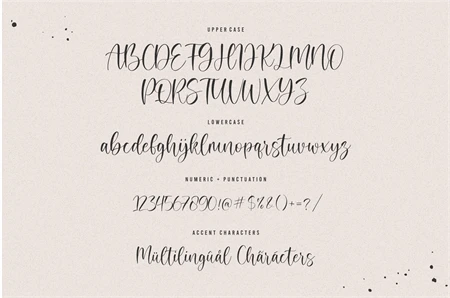 UPPERCASE
ABCDEFGHIJKLMNO
PQRSTUVWXYZ
LOWERCASE
abcdefghijklmnopqrstuvwxyz
NUMERIC + PUNCTUATION
1234567890!@#$%&()+=?/
ACCENT CHARACTERS
Mültilingúâl Châräcters